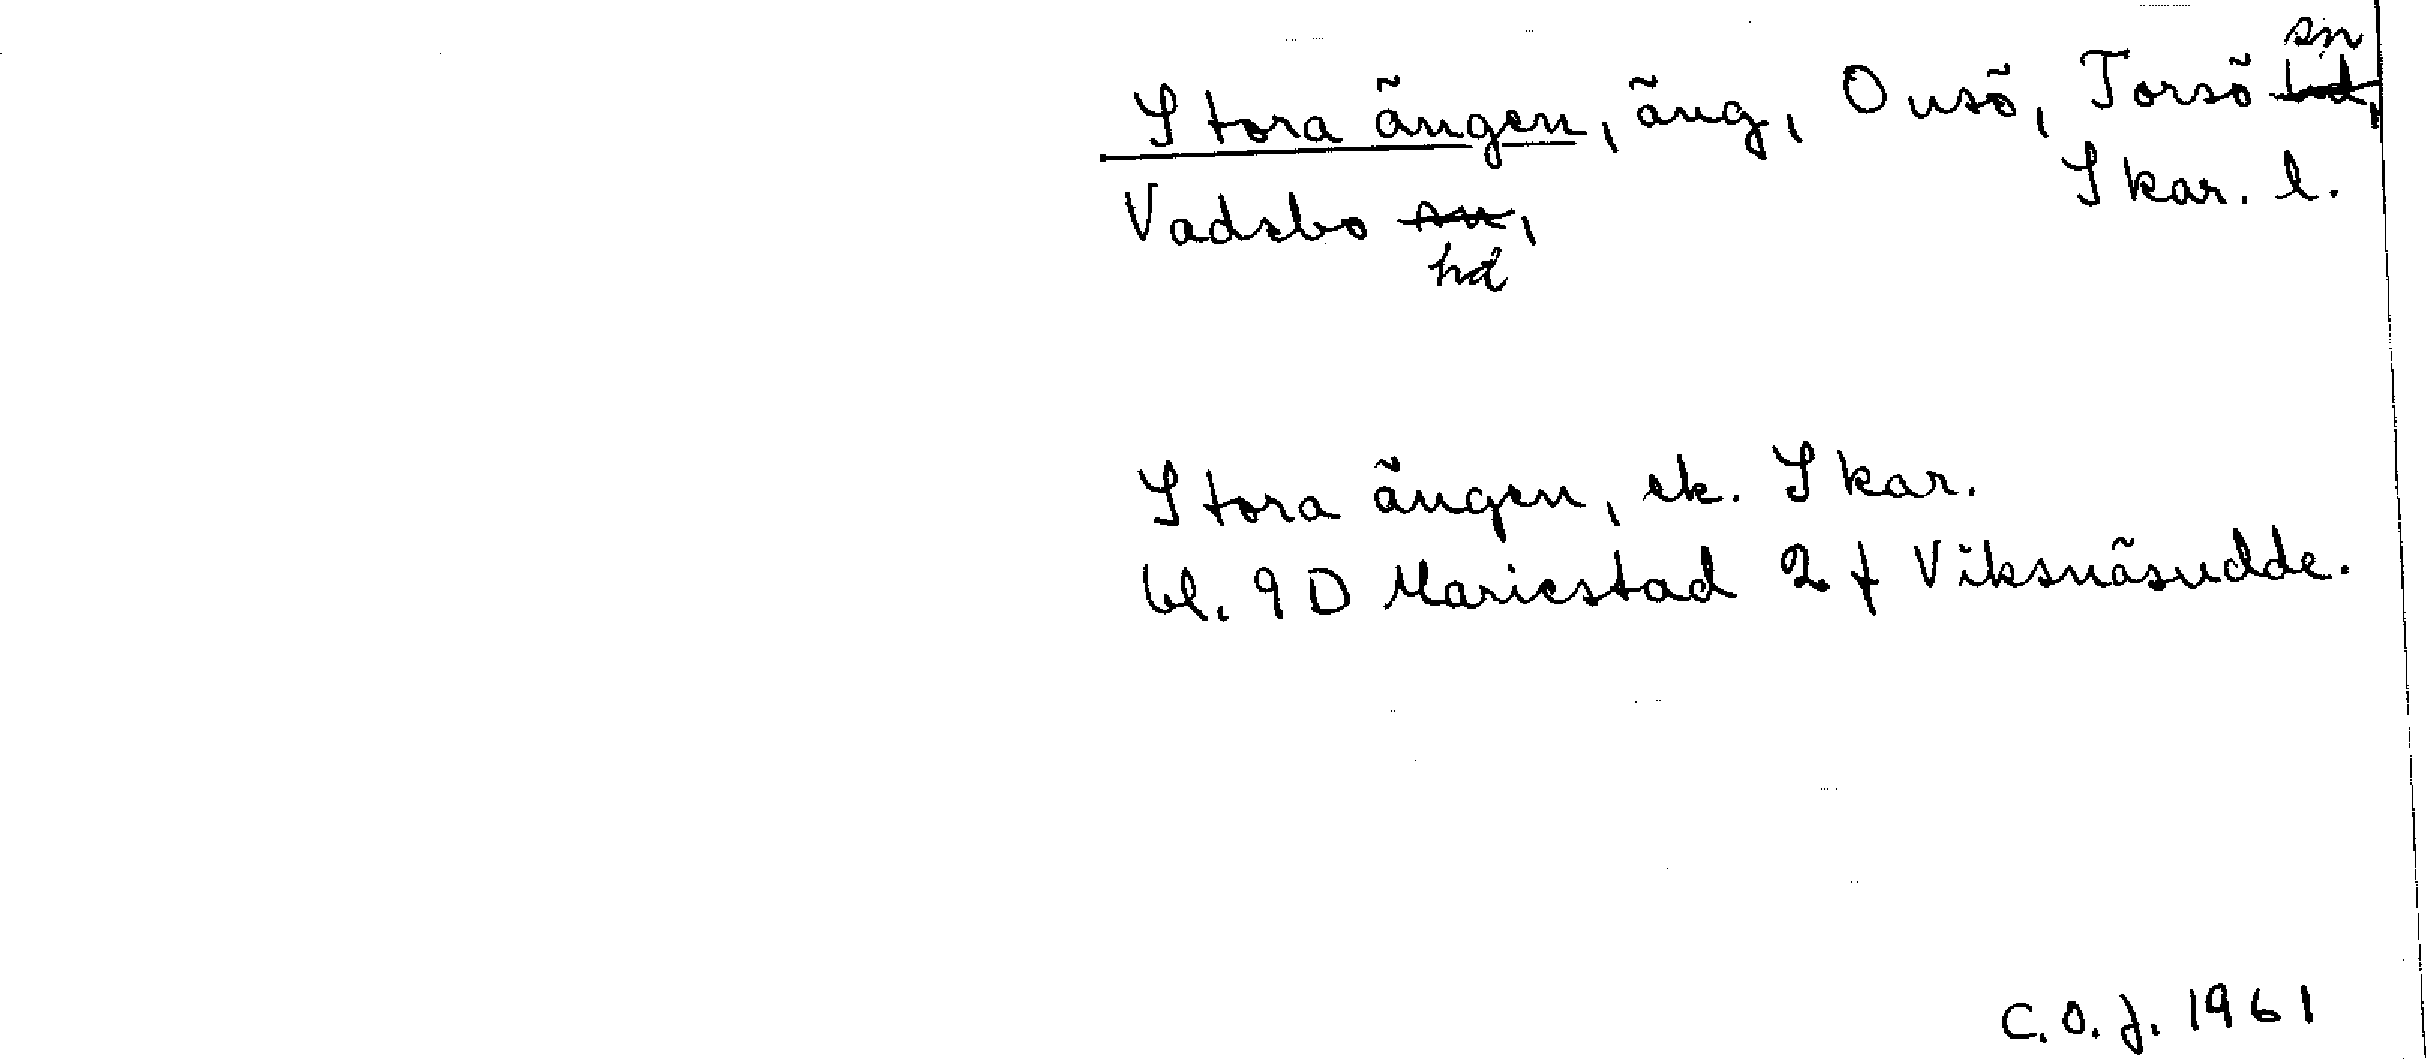 Stora ängen, äng, Onsö, Torsö sn
Skar. l.
Vadsbo hd
Stora ängen, ek. Skar.
bl. 9D Mariestad 2 f Viksnäsudde.
C.O.J. 1961